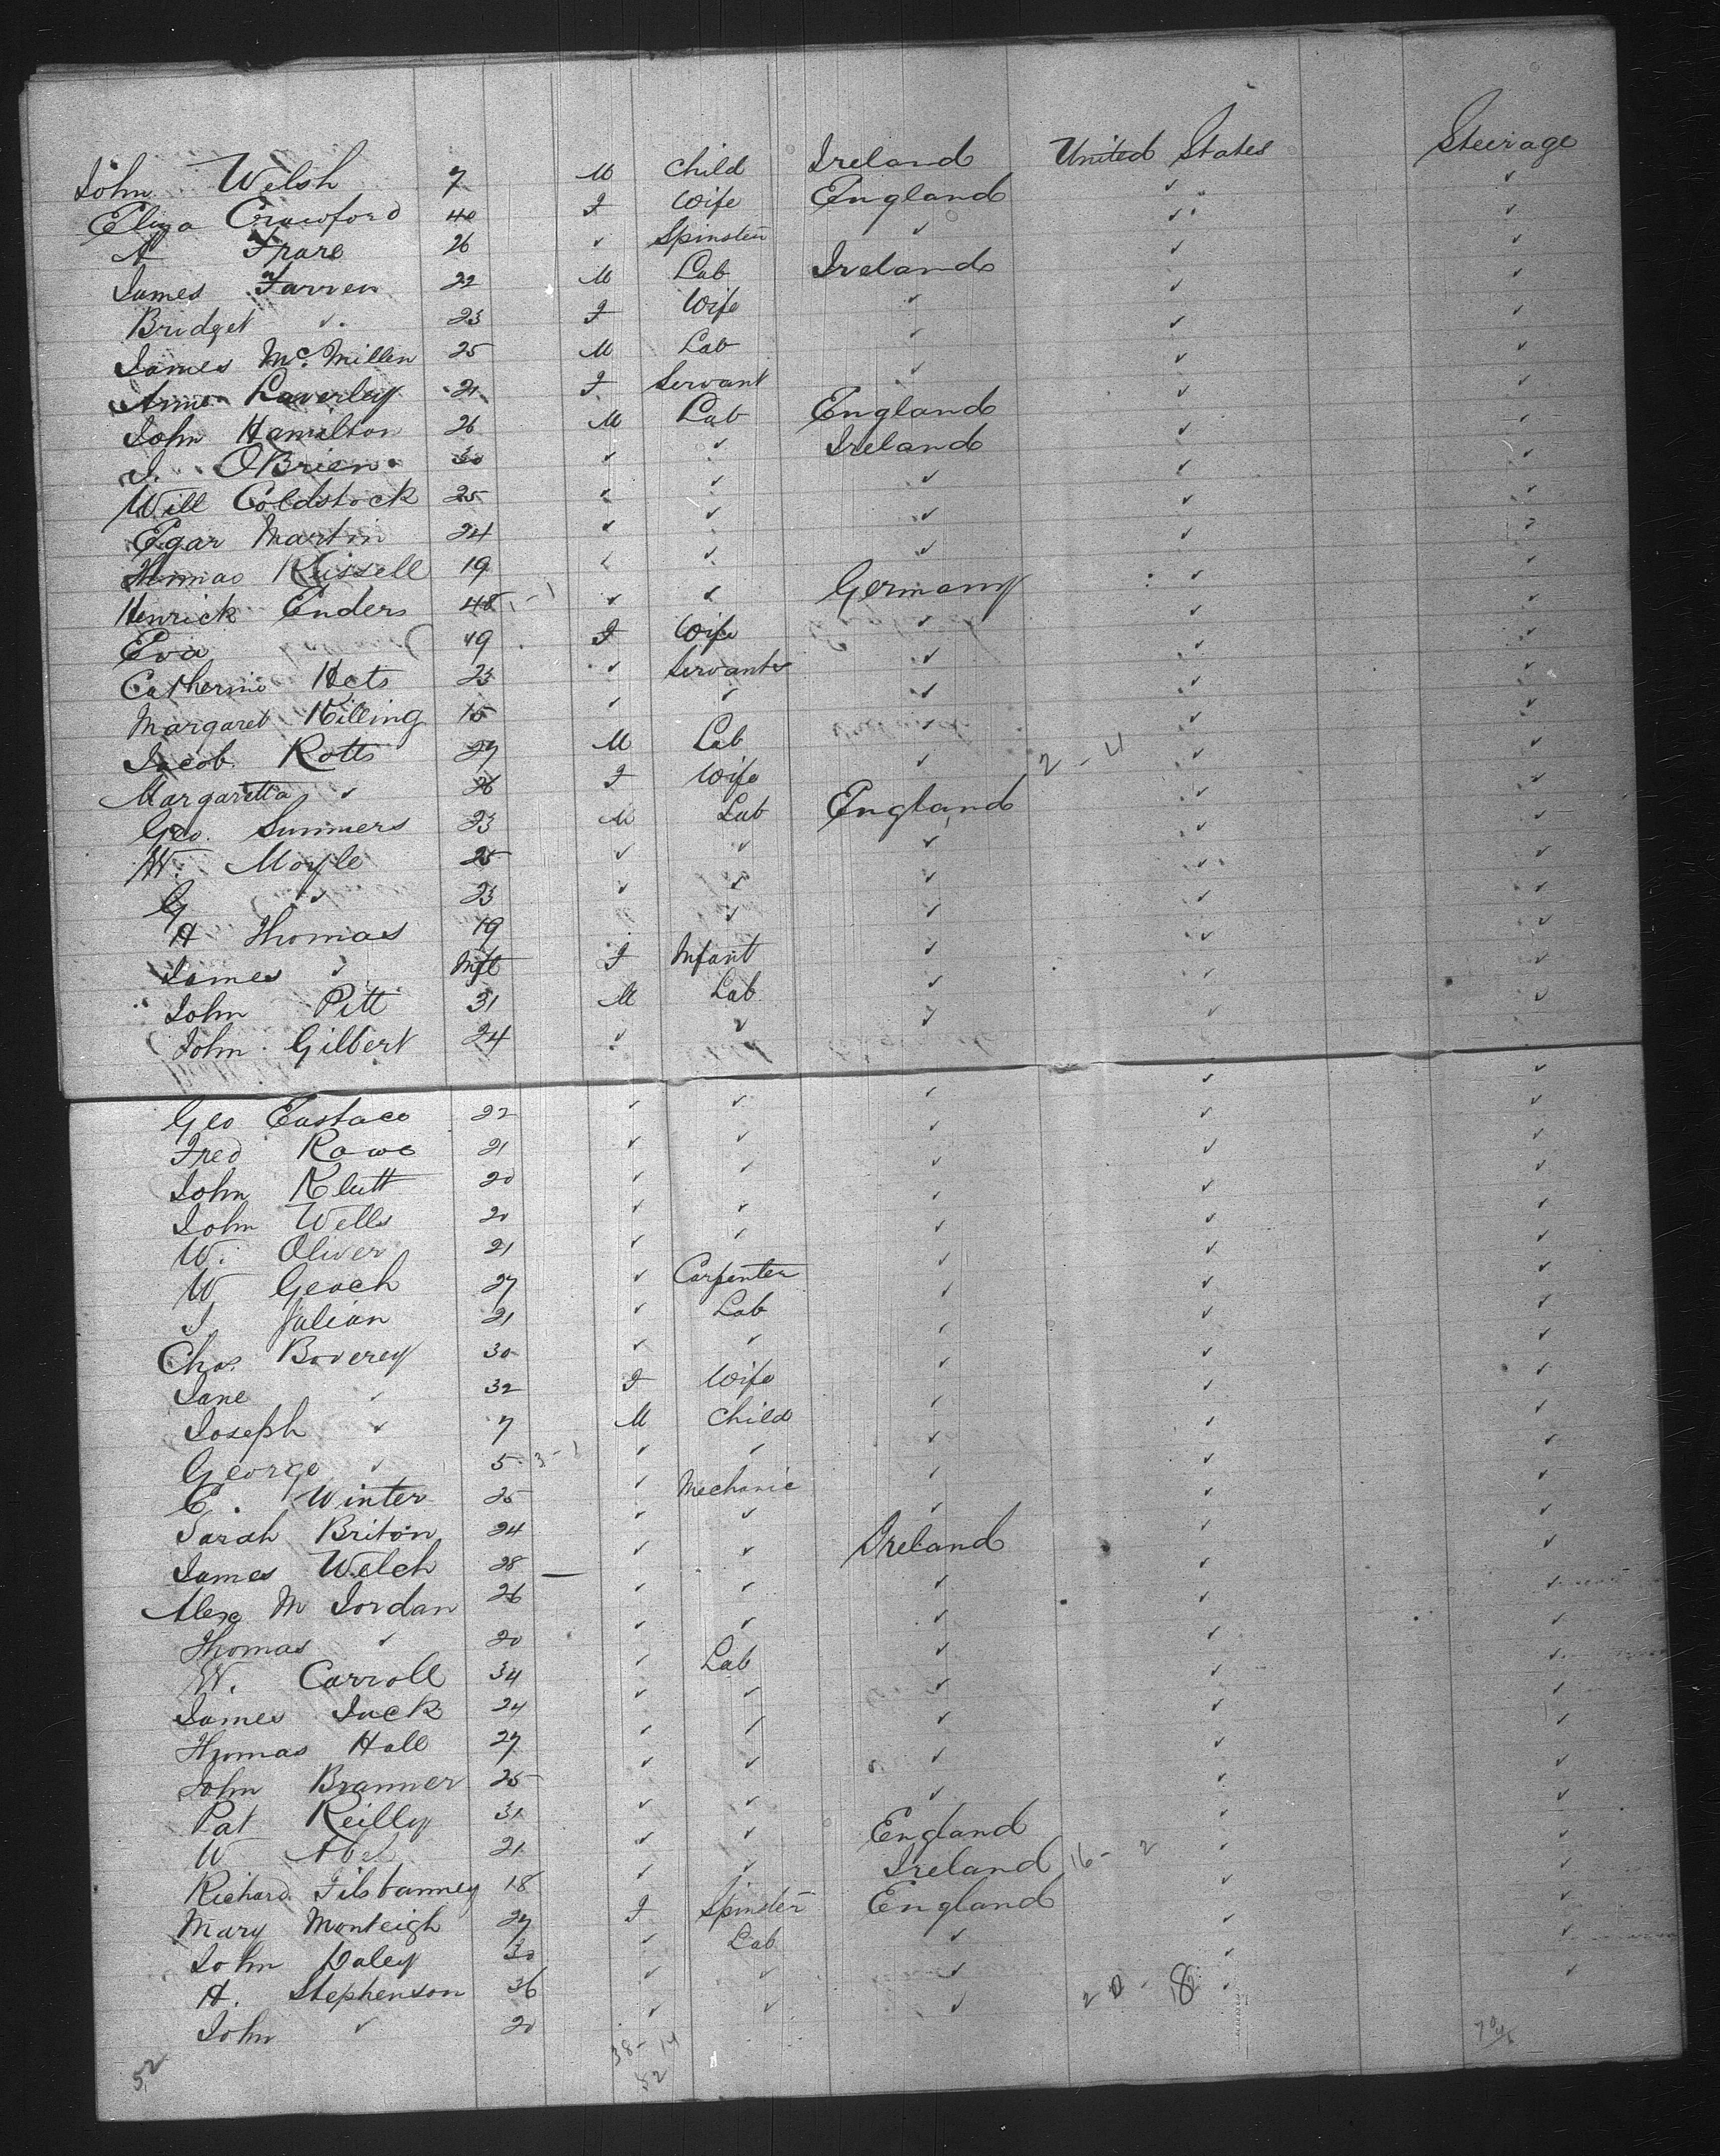 John Welsh 7 M Child Ireland United States Steerage
Eliza Crawford 40 F Wife England ✓ ✓
A Frare 26 ✓ Spinster ✓ ✓ ✓
James Farren 22 M Lab Ireland ✓ ✓
Bridget ✓ 23 F Wife ✓ ✓ ✓
James McMillen 25 M Lab ✓ ✓ ✓
Laverley 21 F Servant ✓ ✓ ✓
John Hamilton 26 M Lab England ✓ ✓
J. OBrien 30 ✓ ✓ Ireland ✓ ✓
Will Coldstock 25 ✓ ✓ ✓ ✓ ✓
Egar Martin 24 ✓ ✓ ✓ ✓ ✓
Thomas Russell 19 ✓ ✓ ✓ ✓ ✓
Henrick Enders 48 ✓ ✓ Germany ✓ ✓
Eva 49 F Wife ✓ ✓ ✓
Catherine Hets 23 ✓ Servants ✓ ✓ ✓
Margaret Killing 15 ✓ ✓ ✓ ✓ ✓
Jacob Rotts 27 M Lab ✓ ✓ ✓
Margaretta ✓ 26 F Wife ✓ 2 - 4 ✓ ✓
Geo. Summers 23 M Lab England ✓ ✓
W. Moyle 25 ✓ ✓ ✓ ✓ ✓
G ✓ 23 ✓ ✓ ✓ ✓ ✓
A Thomas 19 ✓ ✓ ✓ ✓
James ✓ Inft F Infant ✓ ✓ ✓
John Pitt 31 M Lab ✓ ✓ ✓
John Gilbert 24 ✓ ✓ ✓ ✓ ✓
Geo Eustace 22 ✓ ✓ ✓ ✓ ✓
Fred Rowe 21 ✓ ✓ ✓ ✓ ✓
John Klutt 20 ✓ ✓ ✓ ✓ ✓
John Wells 20 ✓ ✓ ✓ ✓ ✓
W. Oliver 21 ✓ ✓ ✓ ✓ ✓
W Geach 27 ✓ Carpenter ✓ ✓ ✓
J Julian 21 ✓ Lab ✓ ✓ ✓
Chas. Boverey 30 ✓ ✓ ✓ ✓ ✓
Jane ✓ 32 F Wife ✓ ✓ ✓
Joseph ✓ 7 M Child ✓ ✓ ✓
George ✓ 5 ✓ ✓ ✓ ✓ ✓
C. Winter 25 ✓ Mechanic ✓ ✓ ✓
Sarah Briton 24 ✓ ✓ ✓ ✓ ✓
James Welch 28 — ✓ ✓ Ireland ✓ ✓
Alex M Jordan 26 ✓ ✓ ✓ ✓ ✓
Thomas ✓ 20 ✓ ✓ ✓ ✓ ✓
W. Carroll 34 ✓ Lab ✓ ✓ ✓
James Jack 24 ✓ ✓ ✓ ✓ ✓
Thomas Hall 27 ✓ ✓ ✓ ✓ ✓
John Branner 25 ✓ ✓ ✓ ✓ ✓
Pat Reilly 31 ✓ ✓ ✓ ✓ ✓
W Abel 21 ✓ ✓ England ✓ ✓
Richard 18 ✓ ✓ Ireland 16 - 2 ✓ ✓
Mary Monteigh 27 F Spinster England ✓ ✓
John Daley 30 ✓ Lab ✓ ✓ ✓
H. Stephenson 36 ✓ ✓ ✓ ✓ ✓
John ✓ 20 ✓ ✓ ✓ 20 - 8 ✓
52 38 - 14
52